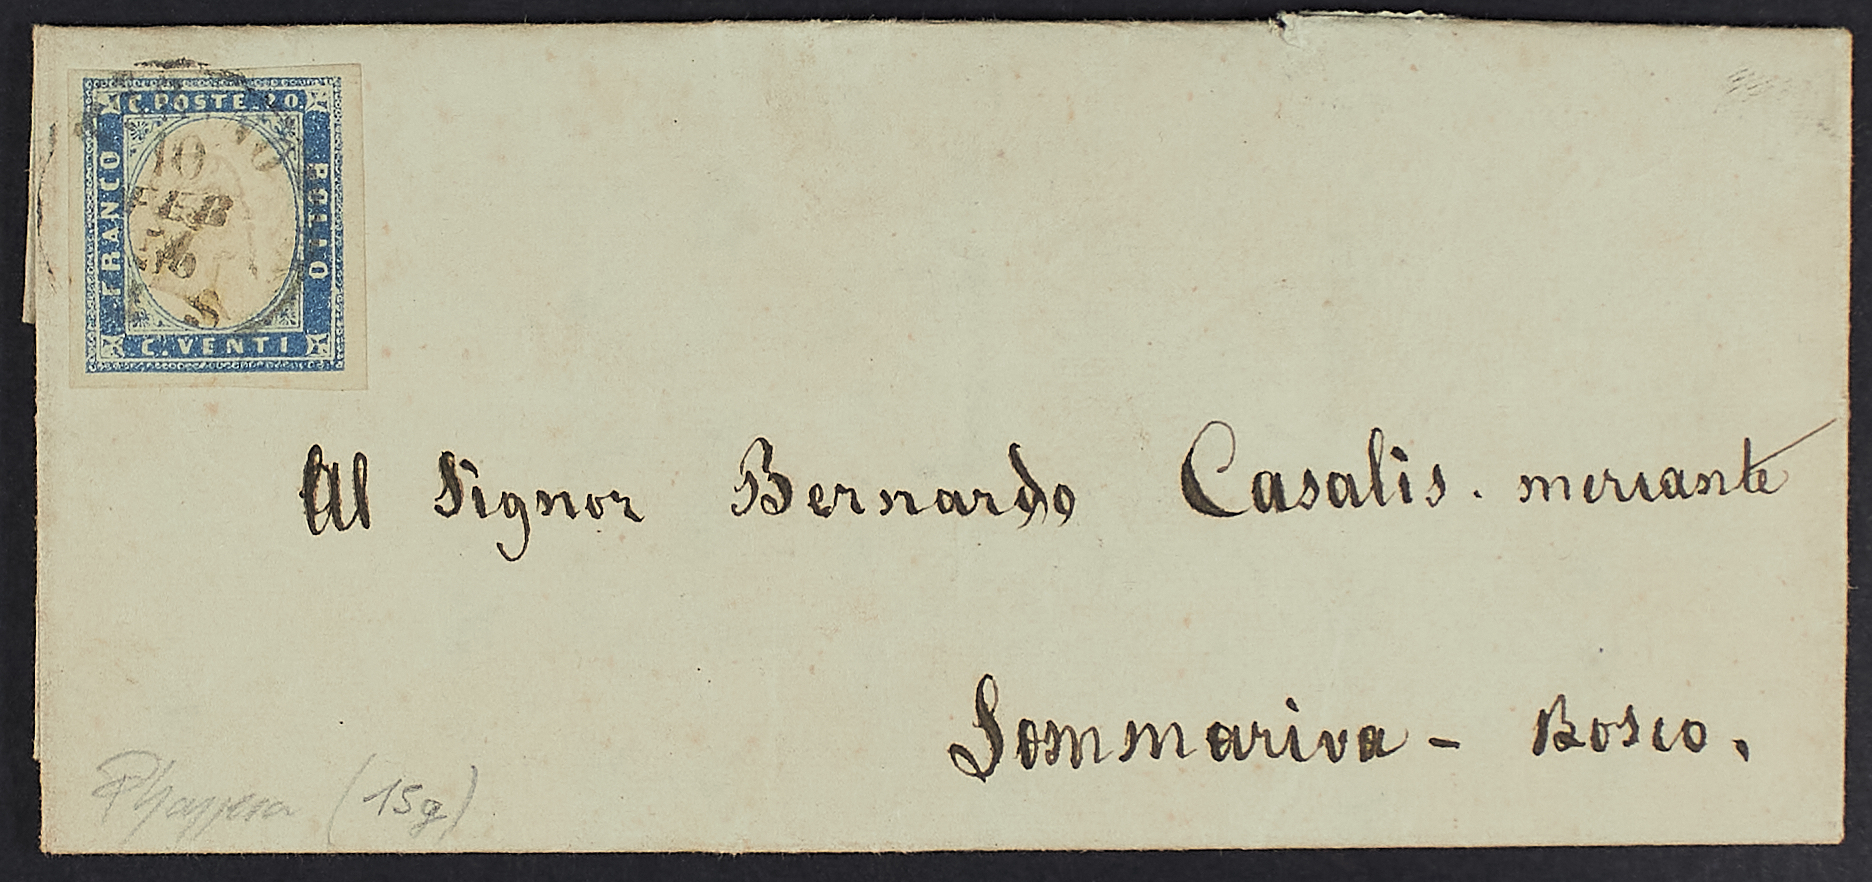 C. POSTE. 20.
FRANCO
BOLLO
C. VENTI
10
FEB
56
Al Signor Bernardo Casalis. mercante
Sommariva - Bosco.
(15g)